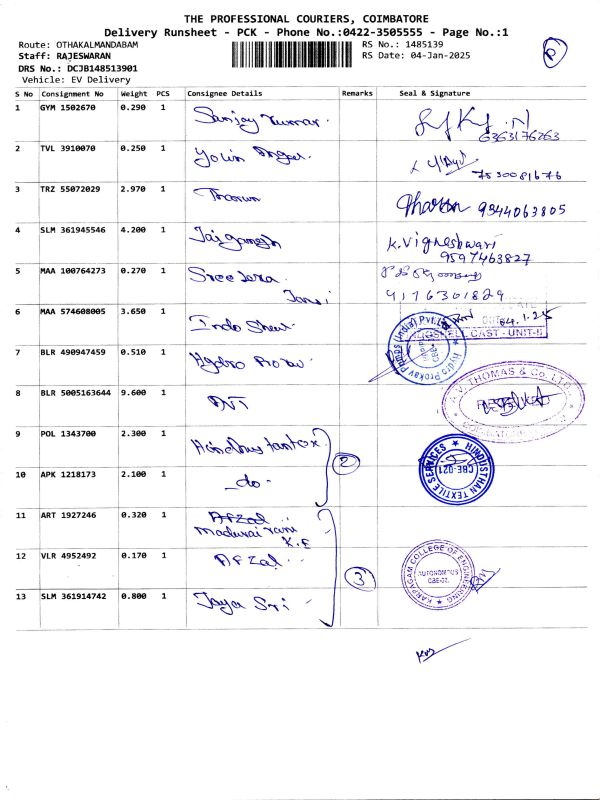 THE PROFESSIONAL COURIERS, COIMBATORE
Delivery Runsheet - PCK - Phone No.:0422-3505555 - Page No.:1
Route: OTHAKALMANDABAM
RS No.: 1485139
Staff: RAJESWARAN
RS Date: 04-Jan-2025
DRS No.: DCJB148513901
Vehicle: EV Delivery
P
S No Consignment No Weight PCS Consignee Details Remarks Seal & Signature
1 GYM 1502670 0.290 1 Sanjay Kumar.
6363176263
2 TVL 3910070 0.250 1
7530081676
3 TRZ 55072029 2.970 1 Tharun Tharun 9344063805
4 SLM 361945546 4.200 1 Jai ganesh K.Vigneshwari
9597463827
5 MAA 100764273 0.270 1 Sree
9176301829
6 MAA 574608005 3.650 1 Indo Shell 04.1.25
CAST - UNIT-II
Hydro Prokav Pumps (India) Pvt.Ltd
7 BLR 490947459 0.510 1 Hydro Prokav
8 BLR 5005163644 9.600 1 AVT
A.V. THOMAS & Co. LTD.
9 POL 1343700 2.300 1 Hindhustantex
2
10 APK 1218173 2.100 1 do
HINDUSTHAN TEXTILE SERVICES
CBE-021
11 ART 1927246 0.320 1 Afzal
Madurai rani
K.E
12 VLR 4952492 0.170 1 Afzal
3
KARPAGAM COLLEGE OF ENGINEERING
AUTONOMOUS
CBE-32.
13 SLM 361914742 0.800 1 Jaya Sri